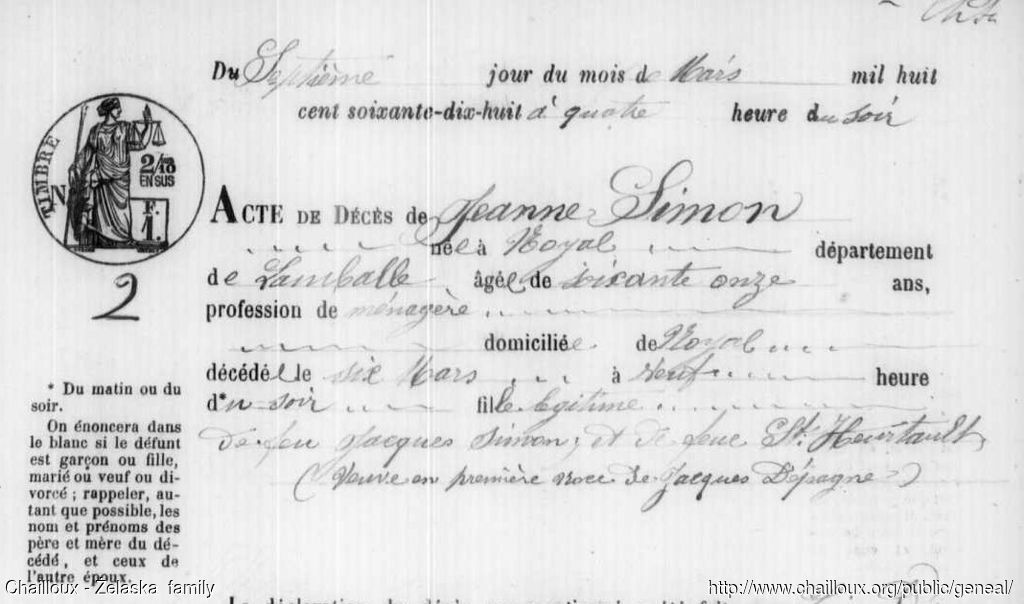 Du Septième jour du mois de Mars mil huit
cent soixante-dix-huit à quatre heure du soir
TIMBRE N
2/10
EN SUS
F.
1.
2
ACTE DE DÉCÈS de Jeanne Simon
née à Noyal département
de Lamballe âgée de soixante onze ans,
profession de ménagère
domiciliée de Noyal
décédée le six Mars à Neuf heure
d*u soir fille légitime
de feu Jacques Simon, et de feue Heurtault,
(Veuve en première noce de Jacques Dépagne)
* Du matin ou du
soir.
On énoncera dans
le blanc si le défunt
est garçon ou fille,
marié ou veuf ou di-
vorcé ; rappeler, au-
tant que possible, les
nom et prénoms des
père et mère du dé-
cédé, et ceux de
l'autre époux.
Chailloux - Zelaska family
http://www.chailloux.org/public/geneal/